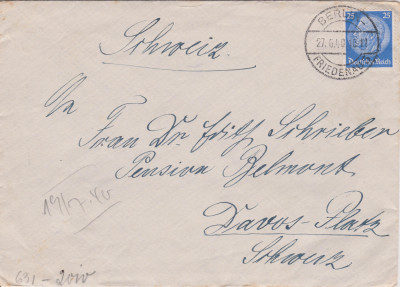 BERLIN
25 25
27.6.40
FRIEDENAU
Deutsches Reich
Schweiz.
An
Frau Dr. Fritz Schrieber
Pension Belmont
Davos-Platz
Schweiz
19/7.40
691-20